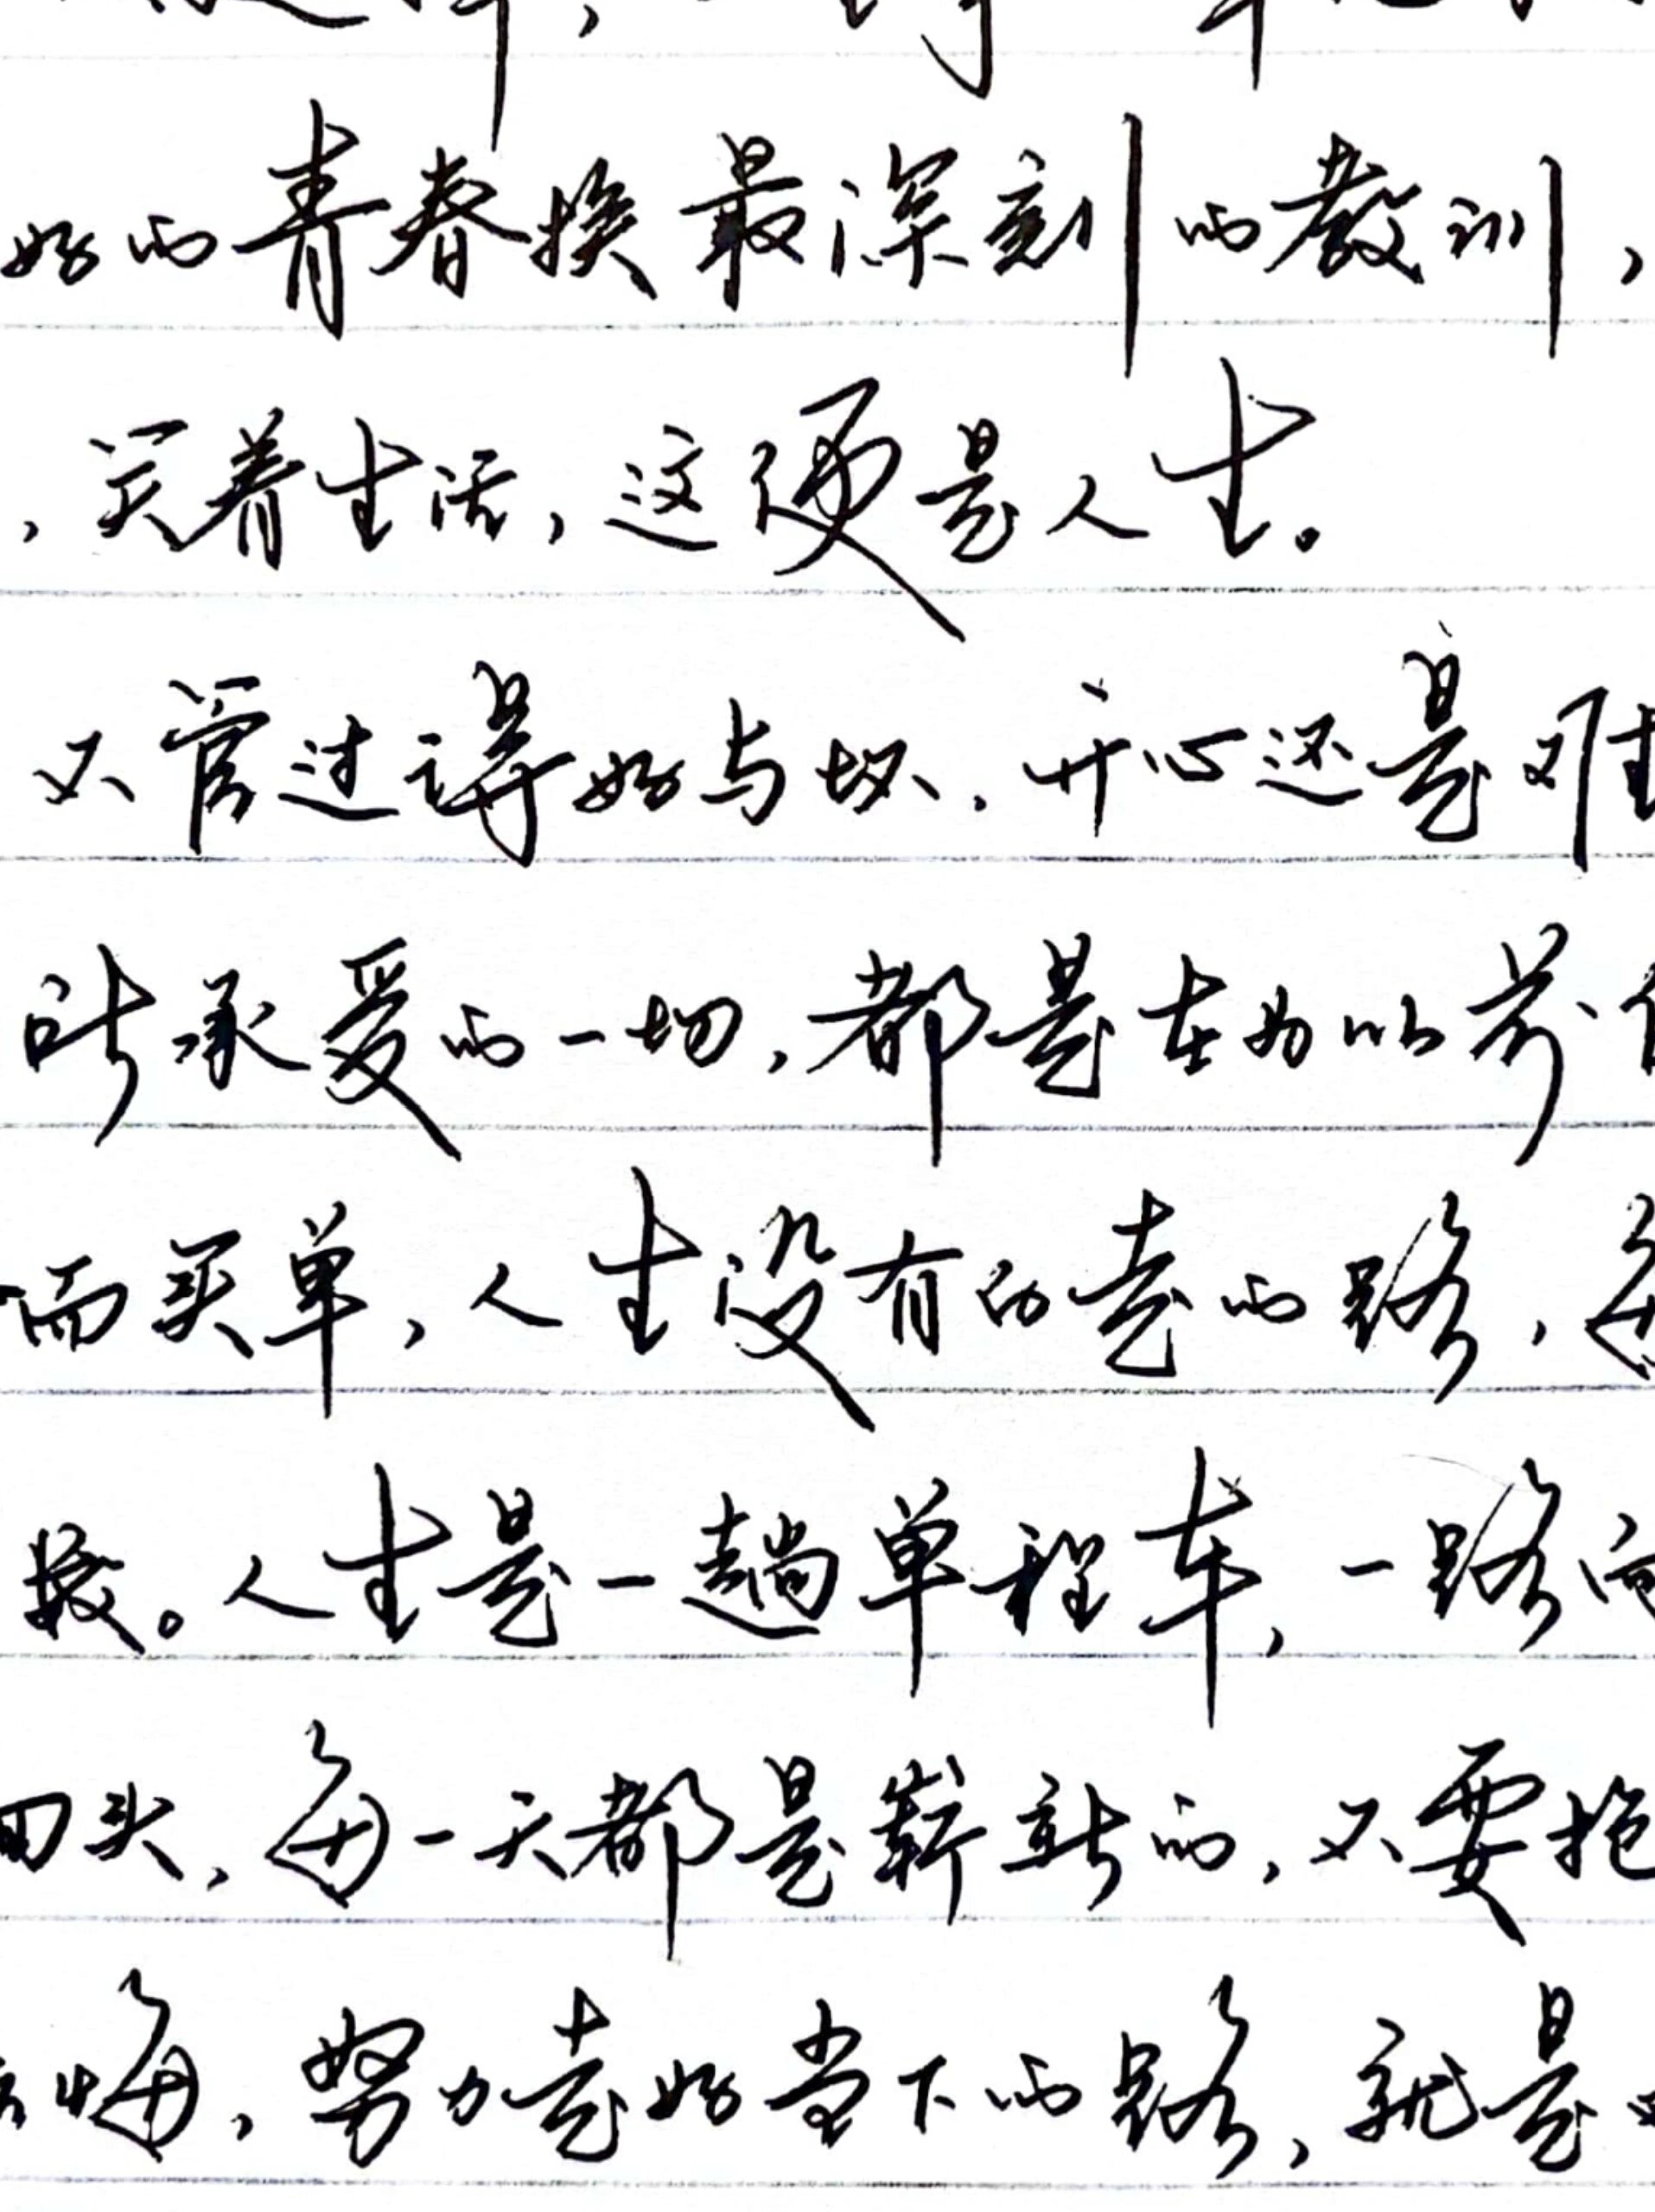 好的青春换最深刻的教训，
，笑着生活，这便是人生。
不管过得好与坏，开心还是难
所承受的一切，都是在为以前
而买单，人生没有白走的路，每
数。人生是一趟单程车，一路向
回头，每一天都是崭新的，不要拖
悔，努力走好当下的路，就是